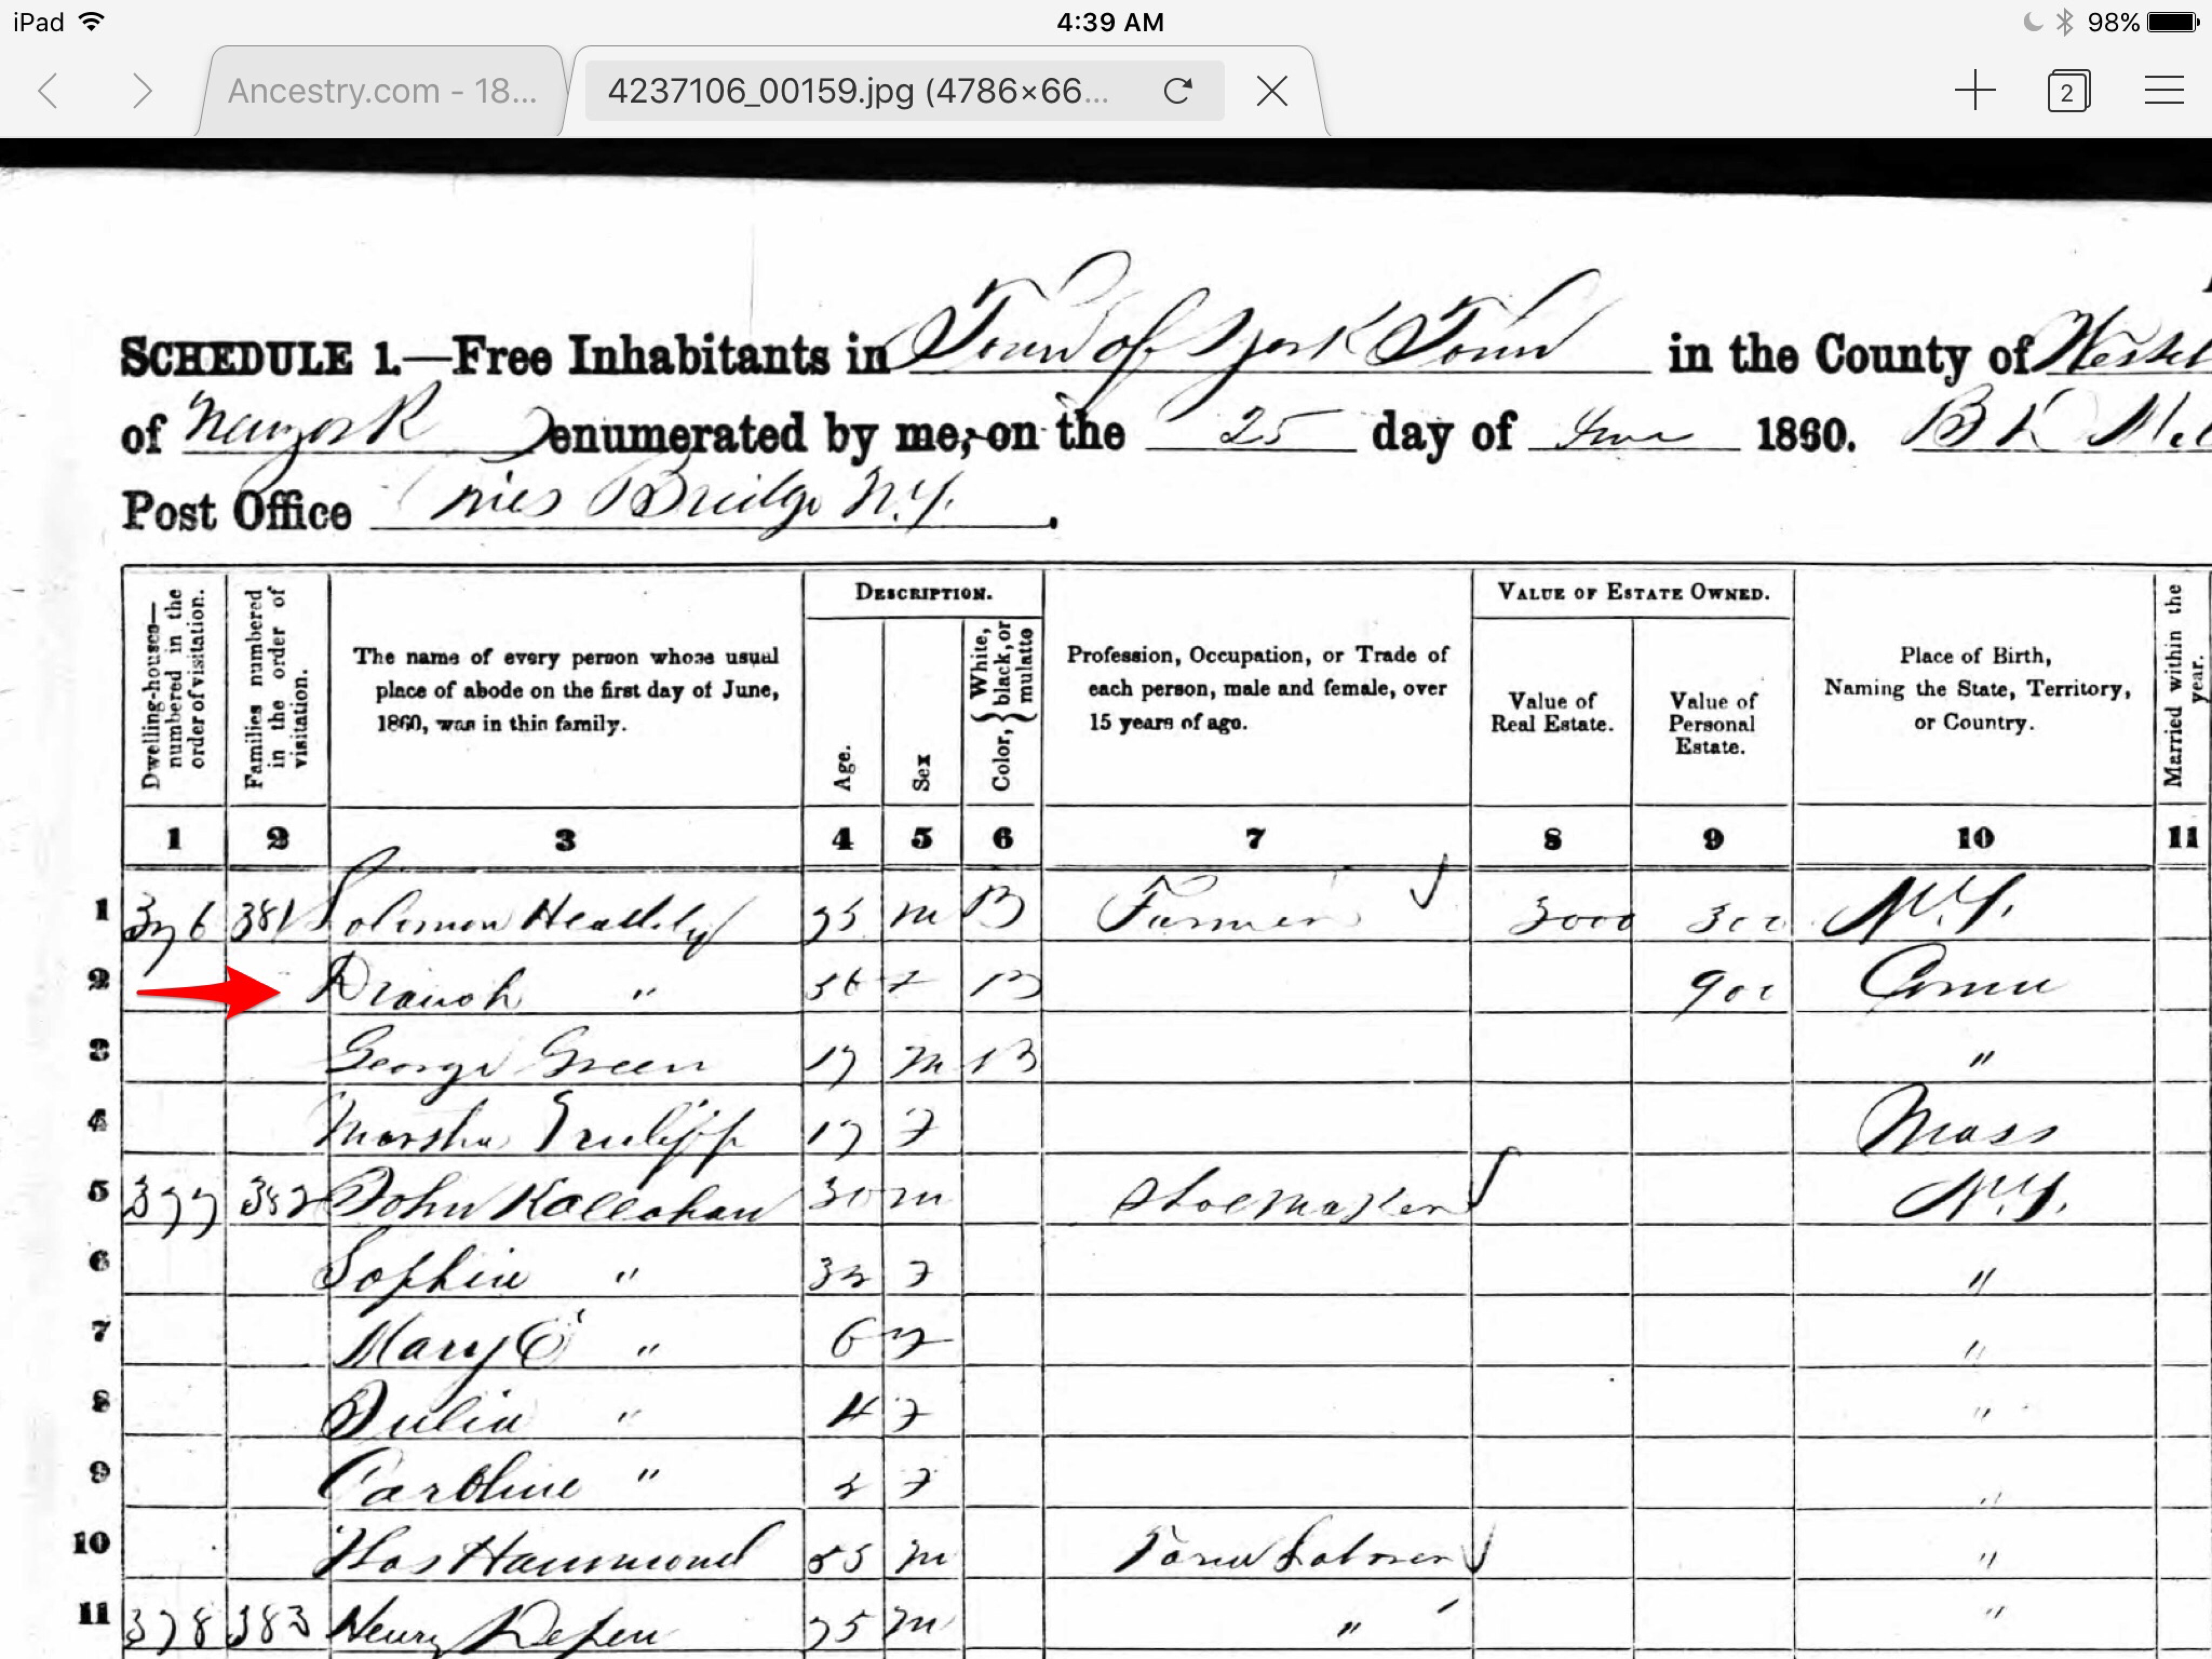 iPad 4:39 AM 98%
Ancestry.com - 18... 4237106_00159.jpg (4786×66... 2
SCHEDULE 1.—Free Inhabitants in Town of York Town in the County of
of New York enumerated by me, on the 25 day of June 1860. B K
Post Office Bridge N.Y.
Dwelling-houses—numbered in the order of visitation.
Families numbered in the order of visitation.
The name of every person whose usual place of abode on the first day of June, 1860, was in this family.
DESCRIPTION.
Age.
Sex
Color, { White, black, or mulatto
Profession, Occupation, or Trade of each person, male and female, over 15 years of age.
VALUE OF ESTATE OWNED.
Value of Real Estate.
Value of Personal Estate.
Place of Birth, Naming the State, Territory, or Country.
Married within the year.
1 2 3 4 5 6 7 8 9 10 11
1 376 381 Solomon 75 m B Farmer 3000 300 N.Y.
2 " 56 f B 900 Conn
3 George Green 17 m B "
4 Marsha 17 f Mass
5 377 382 John Kallahan 30 m Shoemaker N.Y.
6 Sophia " 32 f "
7 Mary E " 6 f "
8 Julia " 4 f "
9 Caroline " 2 f "
10 Thos Hammond 55 m Farm Laborer "
11 378 383 Henry 75 m " "